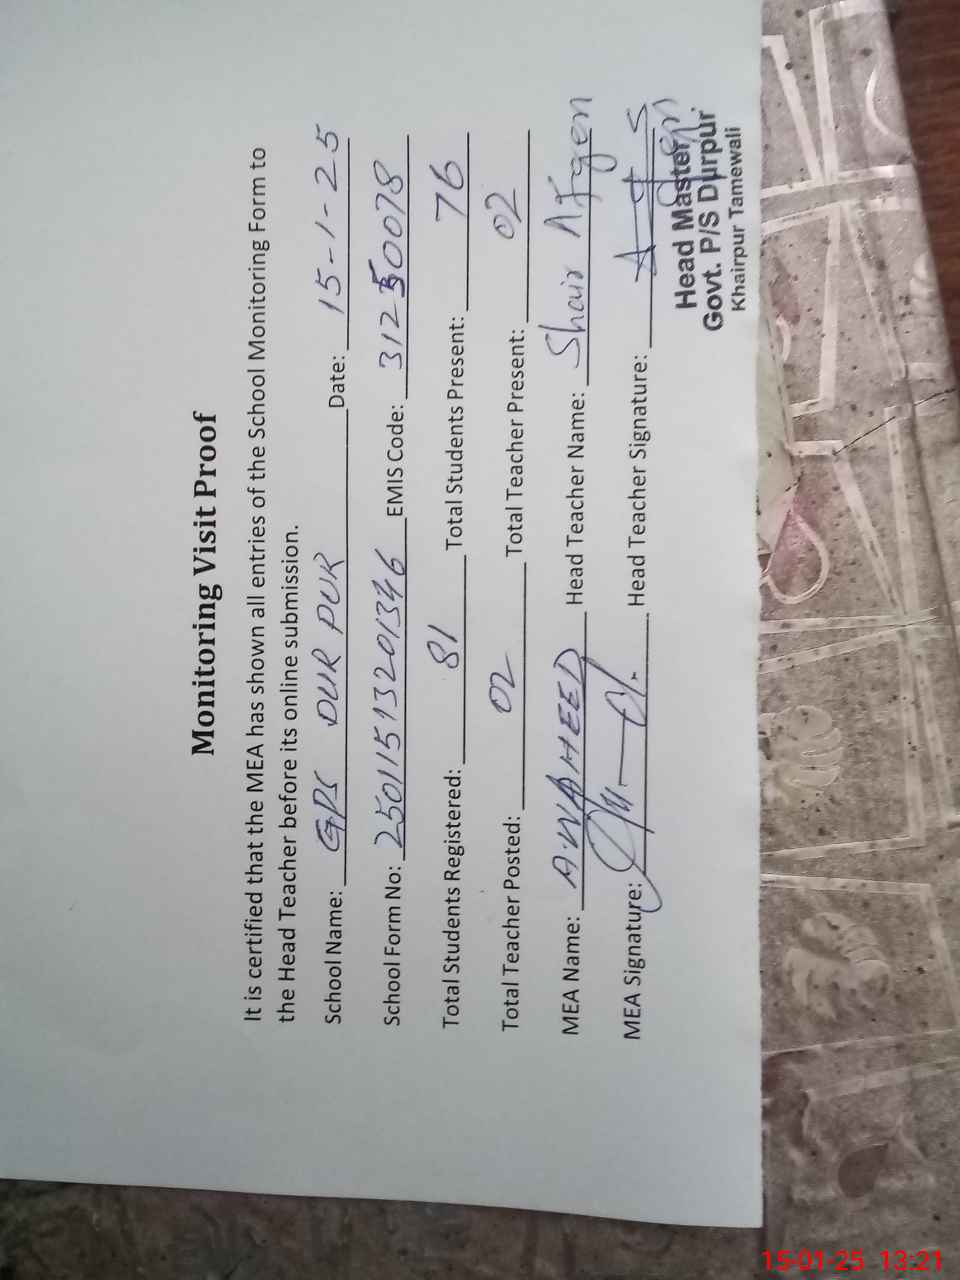 Monitoring Visit Proof
It is certified that the MEA has shown all entries of the School Monitoring Form to
the Head Teacher before its online submission.
School Name: GPS DUR PUR Date: 15-1-25
School Form No: 25011513201346 EMIS Code: 31250078
Total Students Registered: 81 Total Students Present: 76
Total Teacher Posted: 02 Total Teacher Present: 02
MEA Name: A.WAHEED Head Teacher Name: Shair Afgen
MEA Signature: Head Teacher Signature:
Head Master
Govt. P/S Durpur
Khairpur Tamewali
15-01-25 13:21